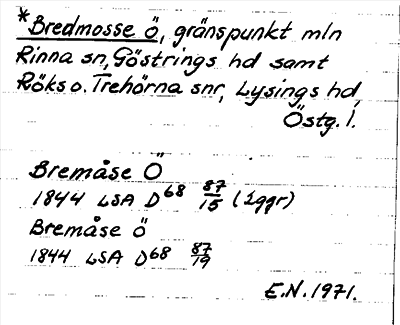 *Bredmosse Ö, gränspunkt mln
Rinna sn, Göstrings hd samt
Röks o. Trehörna snr, Lysings hd,
Östg. l.
Bremåse Ö
1844 LSA D68 87/15 (2ggr)
Bremåse ö
1844 LSA D68 87/19
E.N. 1971.